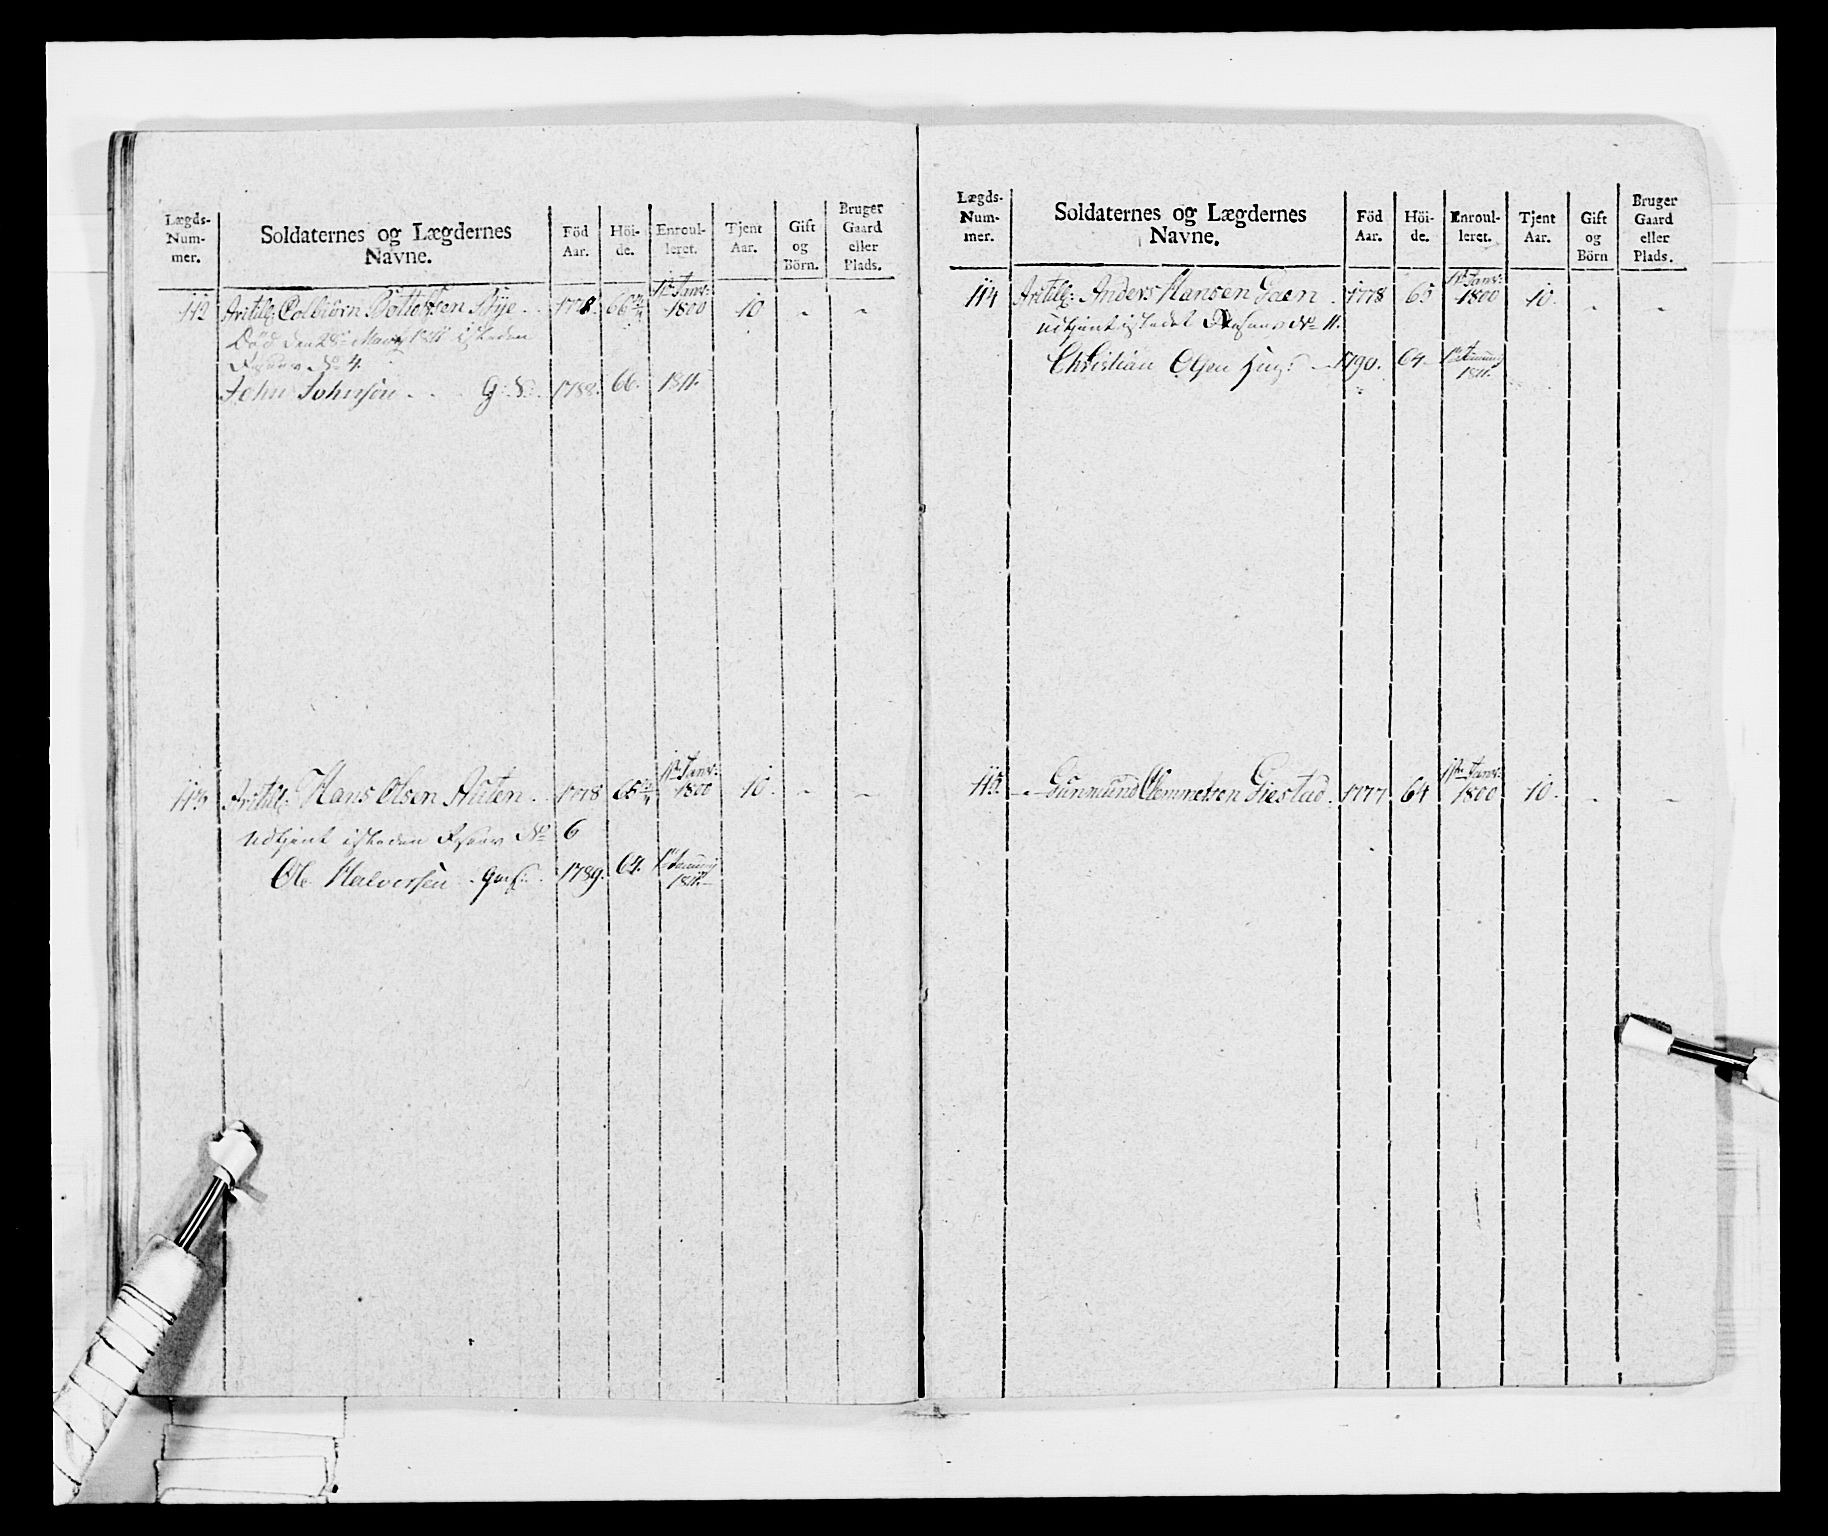 Lægds-
Num-
mer.
Soldaternes og Lægdernes
Navne.
Föd
Aar.
Höi-
de.
Enroul-
leret.
Tjent
Aar.
Gift
og
Börn.
Bruger
Gaard
eller
Plads.
112 Artill: 1778 66 1ste Janr: 1800 10
Död den 1811 isteden
Reserv No 4.
John Johnsen 1788. 66. 1811.
113 Artill: Hans Olsen 1778 65 1ste Janr: 1800 10.
Udtjent isteden Reserv No 6
Ole Halvorsen 1789. 64. 1ste January 1811.
Lægds-
Num-
mer.
Soldaternes og Lægdernes
Navne.
Föd
Aar.
Höi-
de.
Enroul-
leret.
Tjent
Aar.
Gift
og
Börn
Bruger
Gaard
eller
Plads.
114 Artill: Anders Hansen 1778 65 1ste Janr: 1800 10.
Udtjent istedet Reserv No 11.
Christian Olsen 1790. 64 1ste January 1811.
115. Gunmund Clemmetsen Giestad. 1777 64 1ste Janr: 1800 10.